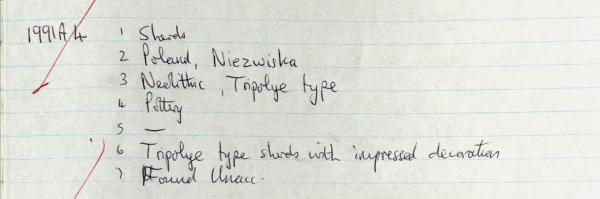 1991A4 1 Sherds
2 Poland, Niezwiska
3 Neolithic, Tripolye type
4 Pottery
5 —
6 Tripolye type sherds with impressed decoration
7 Found Unacc.